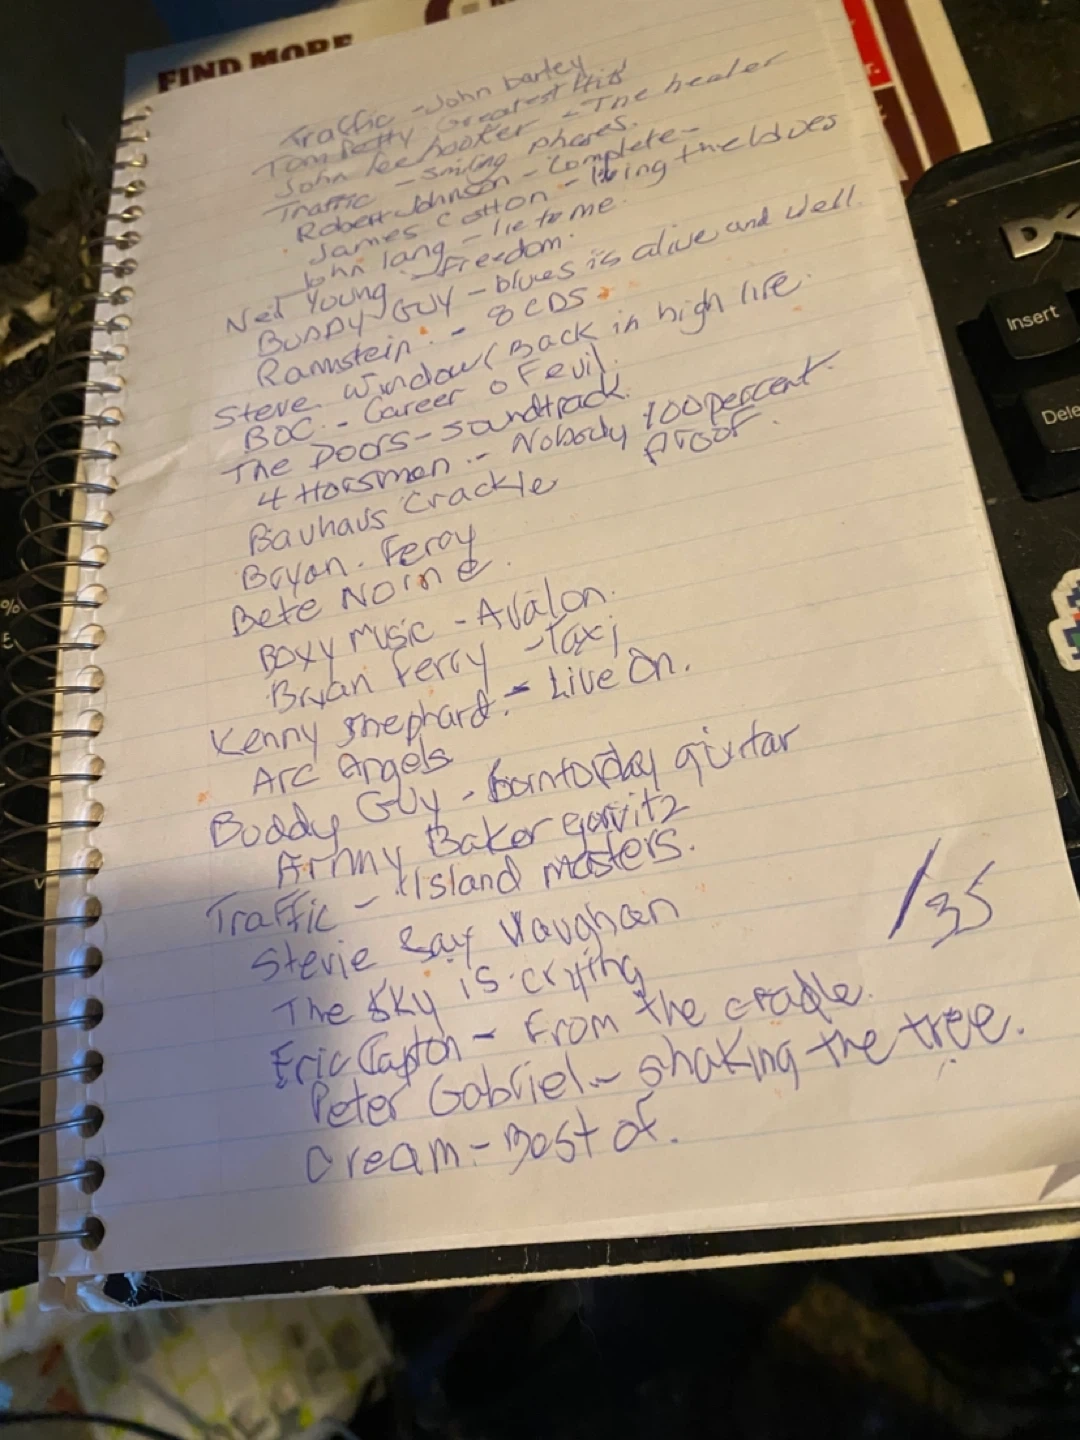 FIND MORE
Traffic - John barley
Tom Petty Greatest Hits
John lee hooker - The healer
Traffic - smiling phases.
Robert Johnson - Complete -
James Cotton - living the blues
John lang - lie to me.
Neil Young - Freedom.
BUDDY GUY - blues is alive and well.
Rammstein. - 8 CDS
Steve Window (Back in high life.
BOC. - Career of evil.
The Doors - soundtrack.
4 Horsmen. - Nobody 100 percent.
proof.
Bauhaus Crackle
Bryan. Feroy
Bete Noirne.
Boxy Music - Avalon.
Bryan Ferry - Taxi
Kenny Shephard. - Live On.
Arc Angels
Buddy Guy - born to play giutar
Army Baker gorvitz
Traffic - Island masters.
Stevie Ray Vaughan
The Sky is crying
/35
Eric Capton - From the cradle.
Peter Gabriel. - shaking the tree.
Cream - Best of.
Insert
Dele